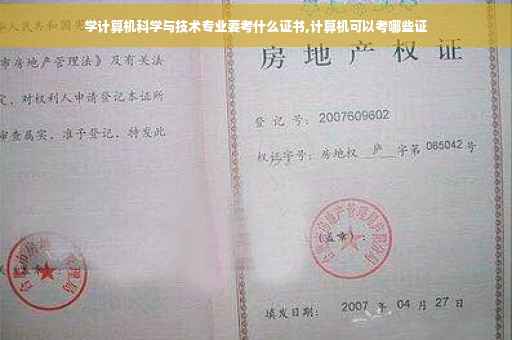 学计算机科学与技术专业要考什么证书,计算机可以考哪些证
人民共和国宪
市房地产管理法》及有关法
定,对权利人申请登记本证所
审查属实,准予登记,特发此
房地产权证
登记号:2007609602
权证字号:房地权 庐 字第 085042 号
(盖章):
填发日期: 2007 年 04 月 27 日